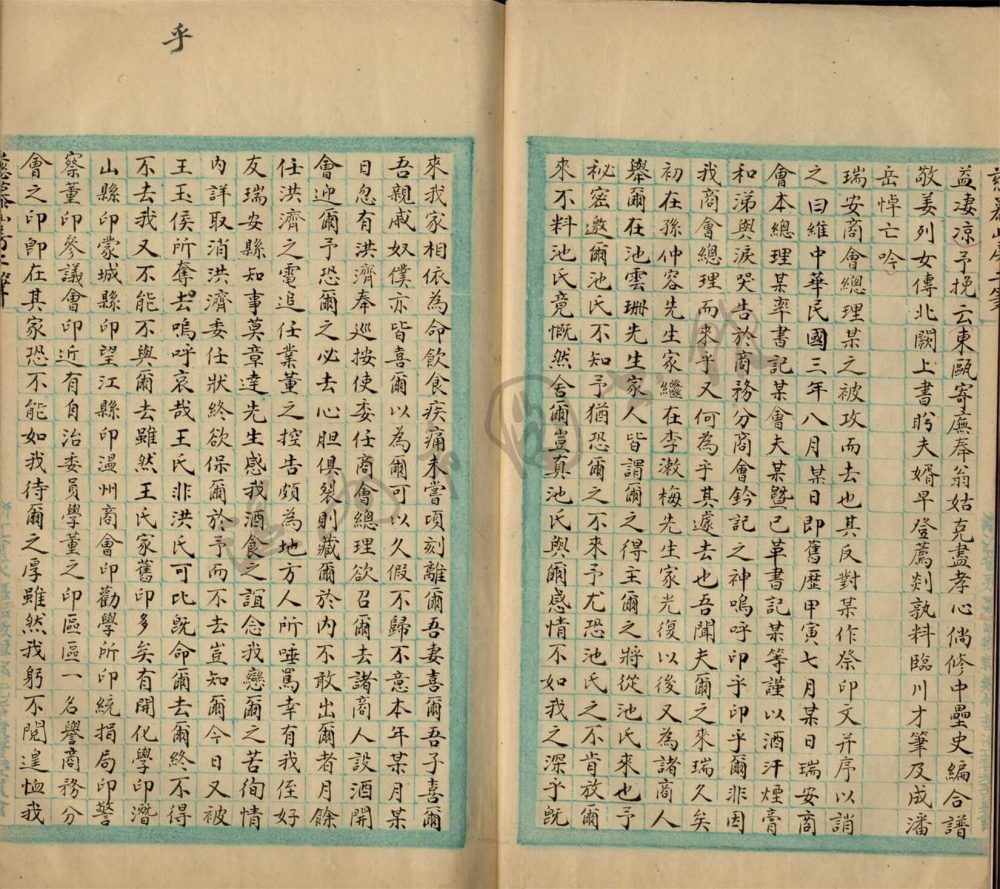 益凄凉予挽云東甌寄廡奉翁姑克盡孝心倘修中壘史編合譜
敬姜列女傳北闕上書盻夫婿早登薦剡孰料臨川才筆及成潘
岳悼亡吟
瑞安商會總理某之被攻而去也其反對某作祭印文并序以誚
之曰維中華民國三年八月某日即舊歷甲寅七月某日瑞安商
會本總理某率書記某會夫某曁已革書記某等謹以酒汗煙膏
和涕與淚哭告於商務分商會鈐記之神嗚呼印乎印乎爾非因
我商會總理而來乎又何為乎其遽去也吾聞夫爾之來瑞久矣
初在孫仲容先生家繼在李漱梅先生家光復以後又為諸商人
舉爾在池雲珊先生家人皆謂爾之得主爾之將從池氏來也予
秘密邀爾池氏不知予猶恐爾之不來予尤恐池氏之不肯放爾
來不料池氏竟慨然舍爾豈真池氏與爾感情不如我之深乎既
乎
來我家相依為命飲食疾痛未嘗頃刻離爾吾妻喜爾吾子喜爾
吾親戚奴僕亦皆喜爾以為爾可以久假不歸不意本年某月某
日忽有洪濟奉巡按使委任商會總理欲召爾去諸商人設酒開
會迎爾予恐爾之必去心胆俱裂則藏爾於內不敢出爾者月餘
任洪濟之電追任業董之控告頗為地方人所唾罵幸有我侄好
友瑞安縣知事莫章達先生感我酒食之誼念我戀爾之苦徇情
內詳取消洪濟委任狀終欲保爾於予而不去豈知爾今日又被
王玉侯所奪去嗚呼哀哉王氏非洪氏可比既命爾去爾終不得
不去我又不能不與爾去雖然王氏家舊印多矣有開化學印潛
山縣印蒙城縣印望江縣印溫州商會印勸學所印統捐局印警
察董印參議會印近有自治委員學董之印區區一名譽商務分
會之印即在其家恐不能如我待爾之厚雖然我躬不閱遑恤我